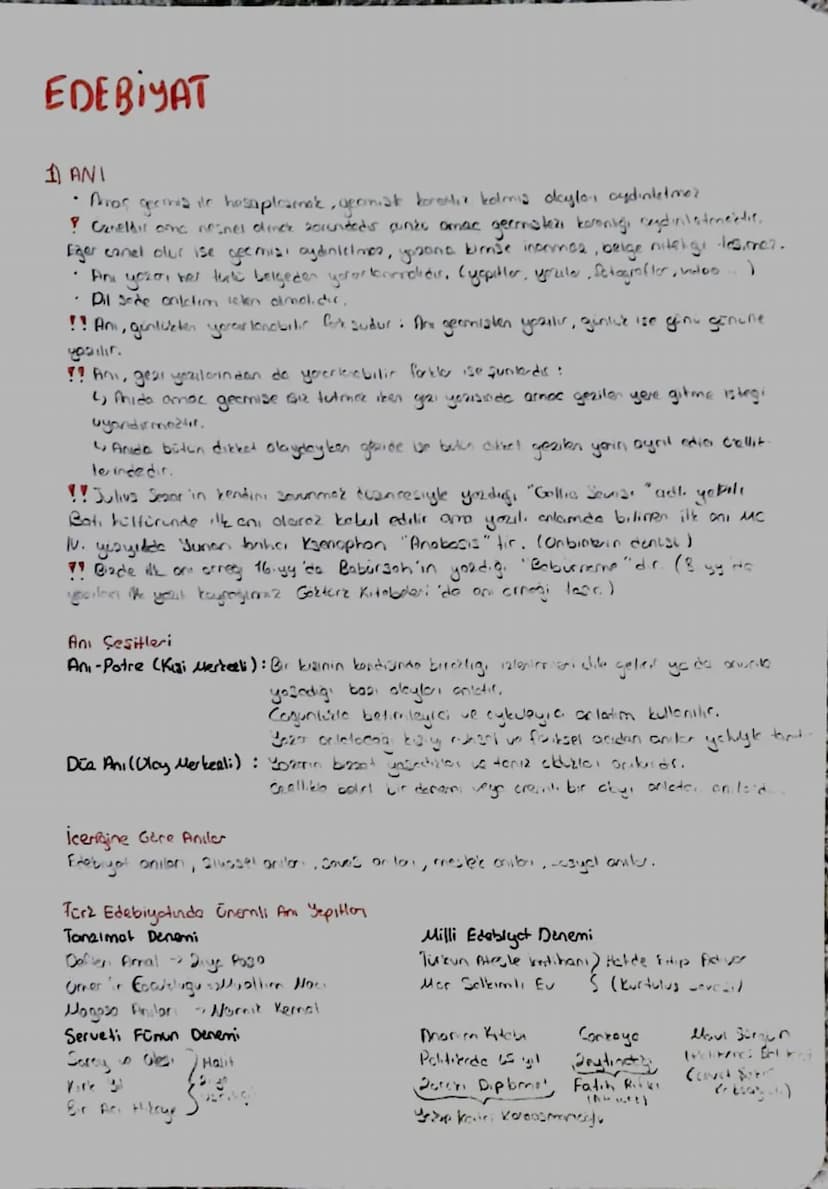 EDEBİYAT
1) ANI
• Amaç geçmiş ile hesaplaşmak, geçmişte karanlık kalmış olayları aydınlatmaz
! Özneldir ama nesnel olmak zorundadır çünkü amaç geçmişteki karanlığı aydınlatmaktır.
Eğer öznel olur ise geçmişi aydınlatmaz, yazana kimse inanmaz, belge niteliği taşımaz.
• Anı yazarı her türlü belgeden yararlanmalıdır. (yapıtlar, yazılar, fotoğraflar, video...)
• Dil sade anlatım içten olmalıdır.
!! Anı, günlükten yararlanabilir farkı şudur: Anı geçmişten yazılır, günlük ise günü gününe
yazılır.
!! Anı, gezi yazılarından da yararlanabilir farklar ise şunlardır:
↳ Anıda amaç geçmişe ışık tutmak iken gezi yazısında amaç gezilen yere gitme isteği
uyandırmaktır.
↳ Anıda bütün dikkat olaydayken gezide ise bütün dikkat gezilen yerin ayırt edici özellik-
lerindedir.
!! Julius Sezar'ın kendini savunmak düşüncesiyle yazdığı "Gallia Savaşı" adlı yapıtı
Batı kültüründe ilk anı olarak kabul edilir ama yazılı anlamda bilinen ilk anı MÖ
IV. yüzyılda Yunan tarihçi Ksenophon "Anabasis"tir. (Onbinlerin dönüşü)
!! Bizde ilk anı örneği 16.yy'da Babürşah'ın yazdığı "Baburname"dir. (8 yy'da
yazılan ilk yazılı kaynağımız Göktürk Kitabeleri'da anı örneği taşır.)
Anı Çeşitleri
Anı-Potre (Kişi Merkezli): Bir kişinin kendisinde bıraktığı izlenimleri dile getirir ya da onunla
yaşadığı bazı olayları anlatır.
Çoğunlukla betimleyici ve öyküleyici anlatım kullanılır.
Yazar anlatacağı kişiyi ruhsal ve fiziksel açıdan anılar yoluyla tanıt-
Düz Anı (Olay Merkezli): Yazarın bizzat yaşadıkları ve tanık oldukları anılardır.
Özellikle belirli bir dönemi veya önemli bir olayı anlatan
İçeriğine Göre Anılar
Edebiyat anıları, siyasal anıları, savaş anıları, meslek anıları, sosyal anılar.
Türk Edebiyatında Önemli Anı Yapıtları
Tanzimat Dönemi
Defteri Amal → Ziya Paşa
Ömer'in Çocukluğu → Muallim Naci
Magosa Anıları → Namık Kemal
Serveti Fünun Dönemi
Saray ve Ötesi } Halit
Kırk Yıl } Ziya
Bir Acı Hikaye
Milli Edebiyat Dönemi
Türkün Ateşle İmtihanı } Halide Edip Adıvar
Mor Salkımlı Ev } (Kurtuluş Savaşı)
Anamın Kitabı
Politikada 45 yıl
Zoraki Diplomat
Yakup Kadri Karaosmanoğlu
Çankaya
Zeytindağı
Fatih Rıfkı
Mavi Sürgün
(Halikarnas
(Cevat Şakir